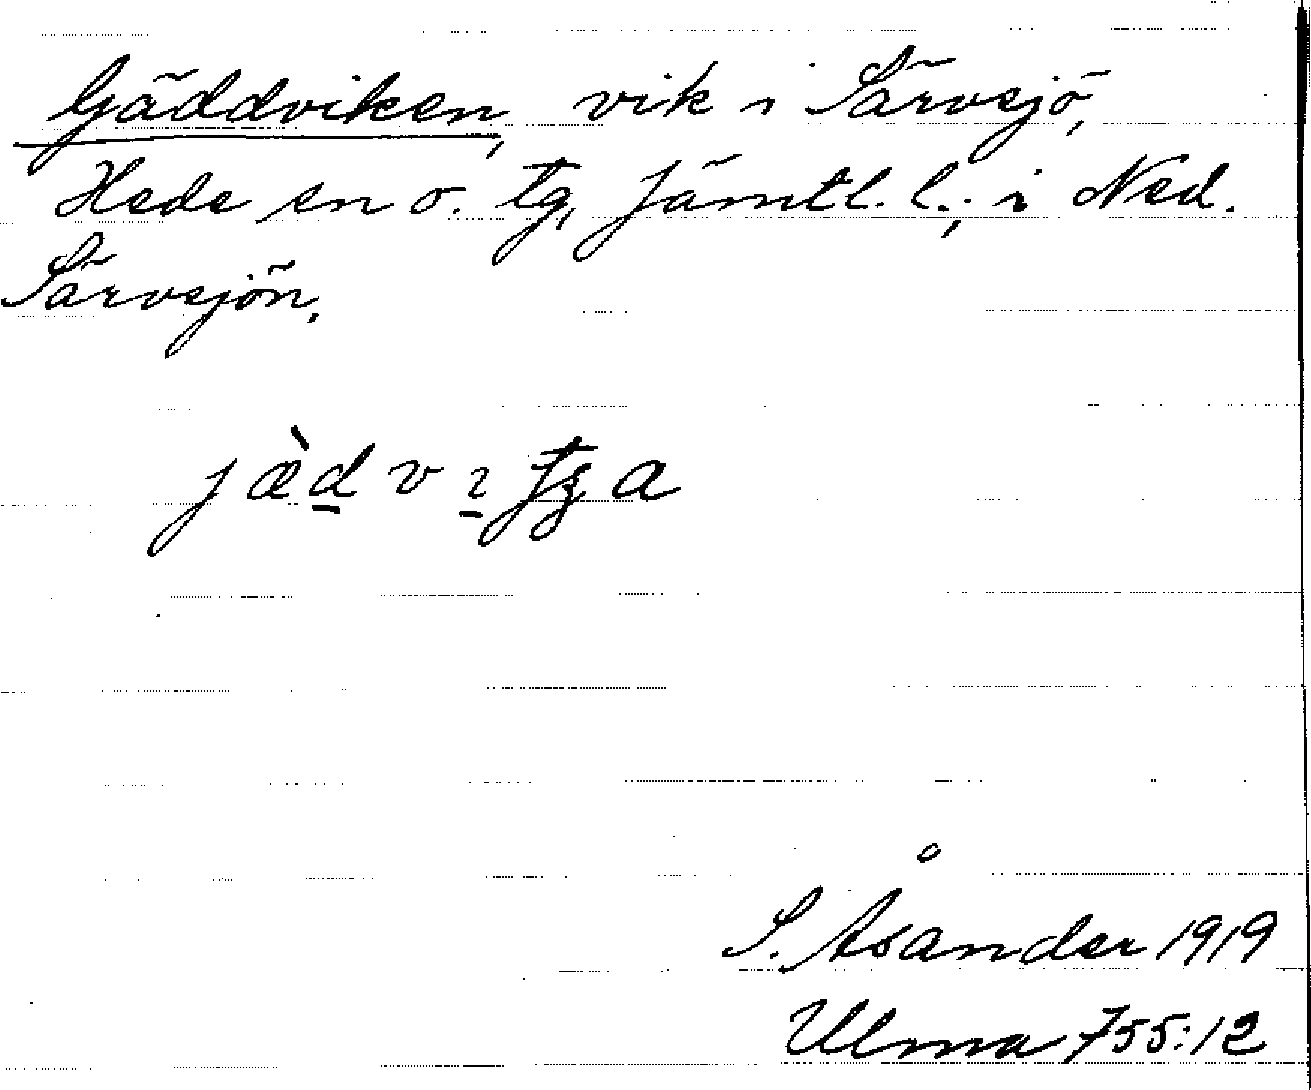 Gäddviken, vik i Särvsjö,
Hede sn o. tg, Jämtl. l.; i Ned.
Särvsjön.
S. Åsander 1919
Ulma 755:12